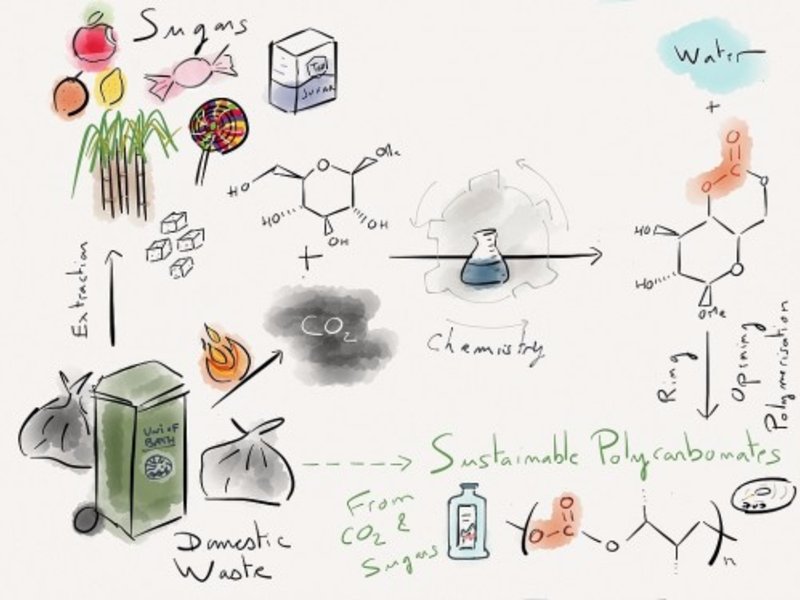 Sugars
TATE
SUGAR
Water
+
O
O
C
O
HO
HO
O
OMe
O
OMe
HO
HO
OH
OH
+
CO2
Chemistry
Extraction
Ring
Opening
Polymerisation
UNI OF
BATH
Domestic
Waste
Sustainable Polycarbonates
From
CO2 &
Sugars
O
O
C
O
n
DVD